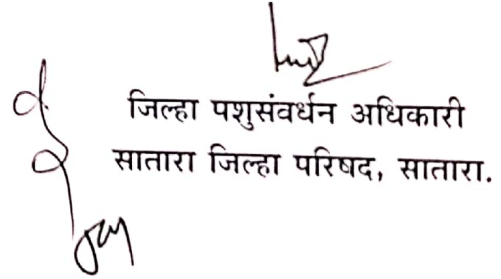 जिल्हा पशुसंवर्धन अधिकारी
सातारा जिल्हा परिषद, सातारा.